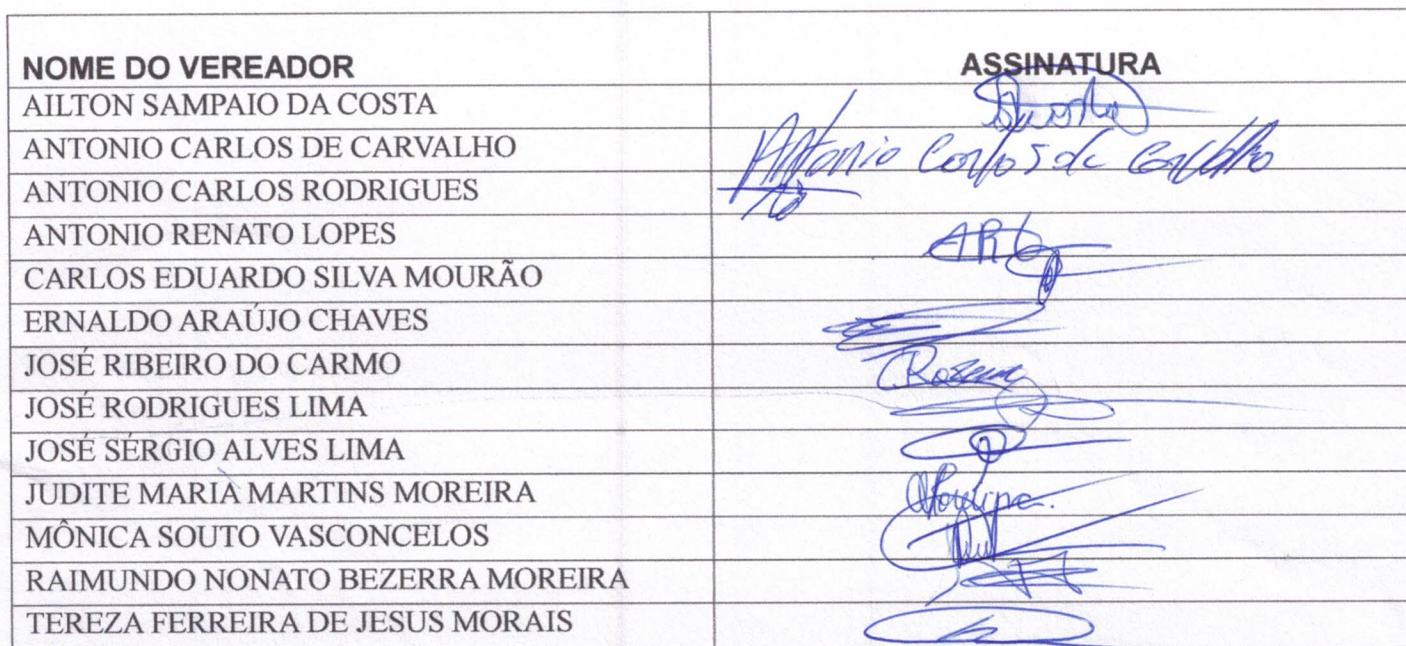 NOME DO VEREADOR ASSINATURA
AILTON SAMPAIO DA COSTA
ANTONIO CARLOS DE CARVALHO Antonio Carlos de Carvalho
ANTONIO CARLOS RODRIGUES
ANTONIO RENATO LOPES
CARLOS EDUARDO SILVA MOURÃO
ERNALDO ARAÚJO CHAVES
JOSÉ RIBEIRO DO CARMO
JOSÉ RODRIGUES LIMA
JOSÉ SÉRGIO ALVES LIMA
JUDITE MARIA MARTINS MOREIRA
MÔNICA SOUTO VASCONCELOS
RAIMUNDO NONATO BEZERRA MOREIRA
TEREZA FERREIRA DE JESUS MORAIS